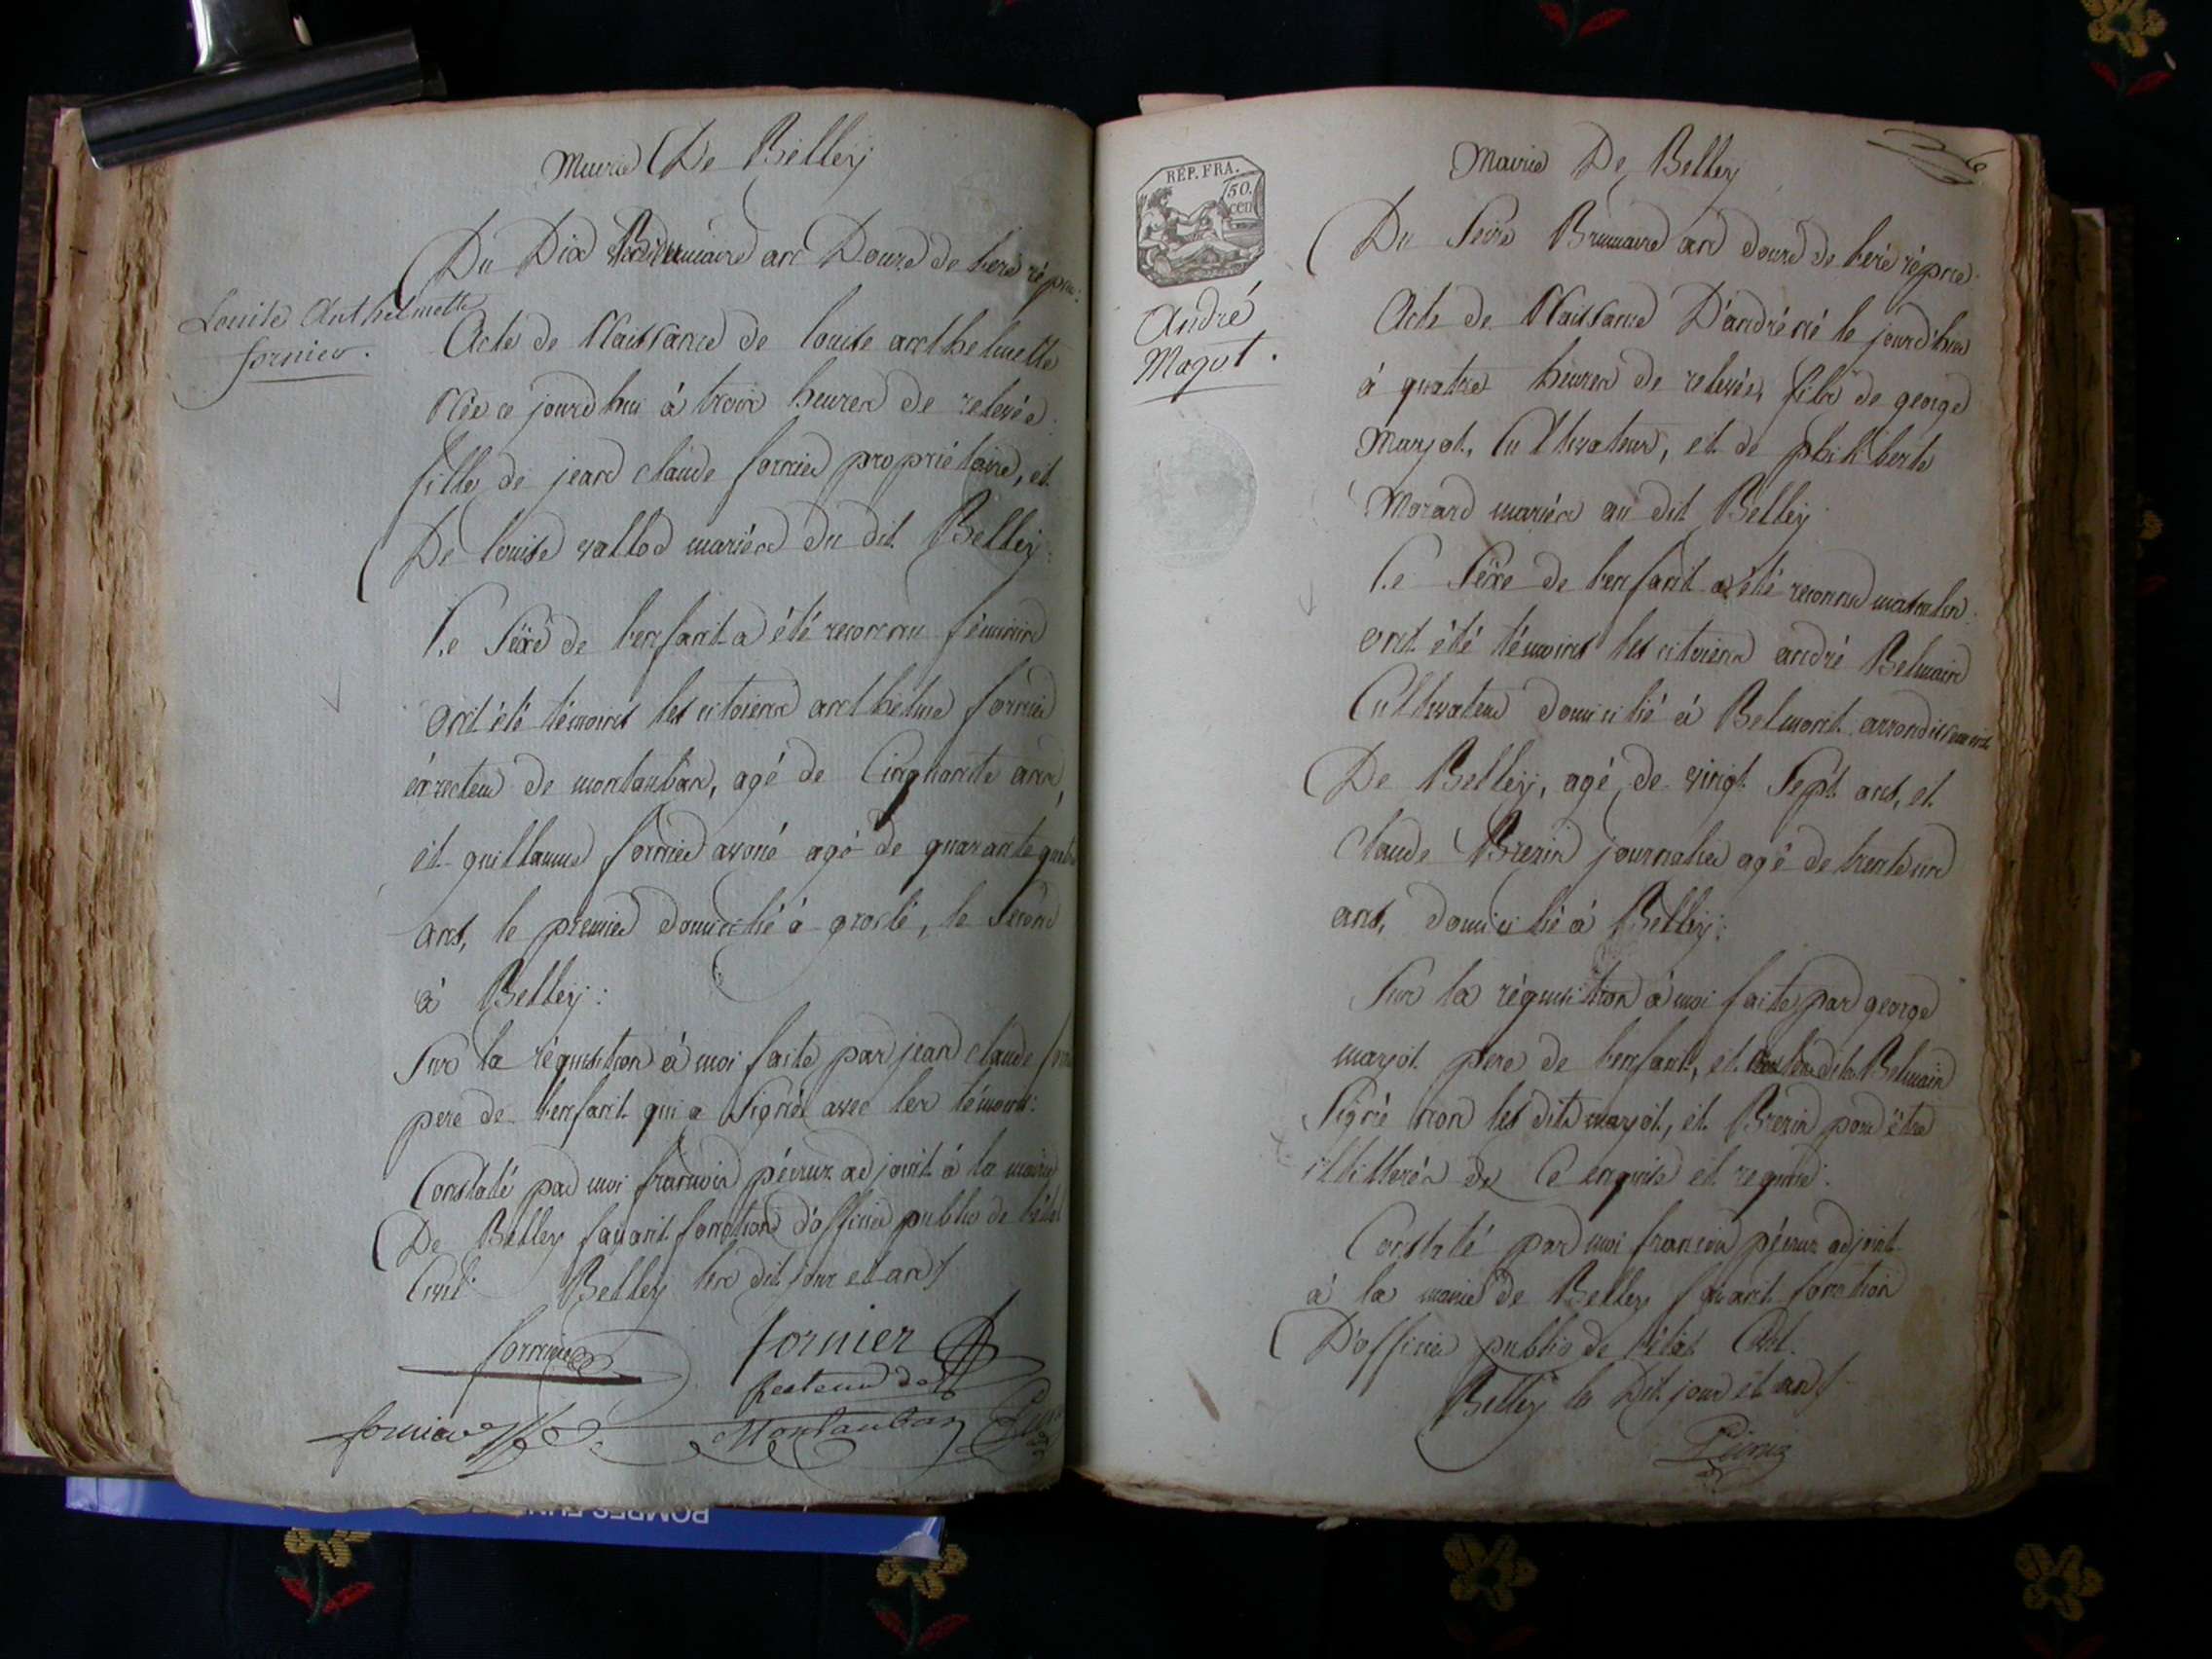 Mairie De Belley
Du Dix Brumaire an Douze de l'ere répne:
Louise Anthelmette
fornier.
Acte de Naissance de louise anthelmette
Née ce jourd'hui à trois heures de relevée:
fille de jean claude fornier propriétaire, et
De louise vallod mariés du dit Belley:
Le Séxe de l'enfant a été reconnu féminin
ont été témoins les citoiens anthelme fornier
érrecteur de montauban, agé de Cinquante ans,
et guillaume fornier avoué agé de quarante quatre
ans, le premier domicilié à groslé, le Second
à Belley:
Sur la réquisition à moi faite par jean claude
pere de l'enfant qui a Signé avec les témoins:
Constaté par moi francois adjoint à la mairie
De Belley faisant fonctions d'officier public de l'état
Civil. Belley les dit jour et an
fornier
fornier
Recteur de
Montauban
fornier
REP. FRA.
50.
cen
André
Magot.
Mairie De Belley
Du Seize Brumaire an douze de l'ere répne:
Acte de Naissance D'andré né le jourd'hui
à quatre heures de relevée, fils de george
Marjot, Cultivateur, et de philiberte
Morard mariés au dit Belley
Le Séxe de l'enfant a été reconnu masculin:
ont été témoins les citoiens andré Belmain
Cultivateur domicilié à Belmont arrondissement
De Belley, agé de vingt Sept ans, et
claude Brezin journalier agé de trente un
ans, domicilié à Belley:
Sur la réquisition à moi faite par george
marjot pere de l'enfant, et le dit Belmain
Signé non les dits marjot, et Brezin pour être
illitterés de Ce enquis et requis:
Constaté par moi francois adjoint
à la mairie de Belley faisant fonction
D'officier public de l'état Civil.
Belley les Dit jour et an
POMPES FUN